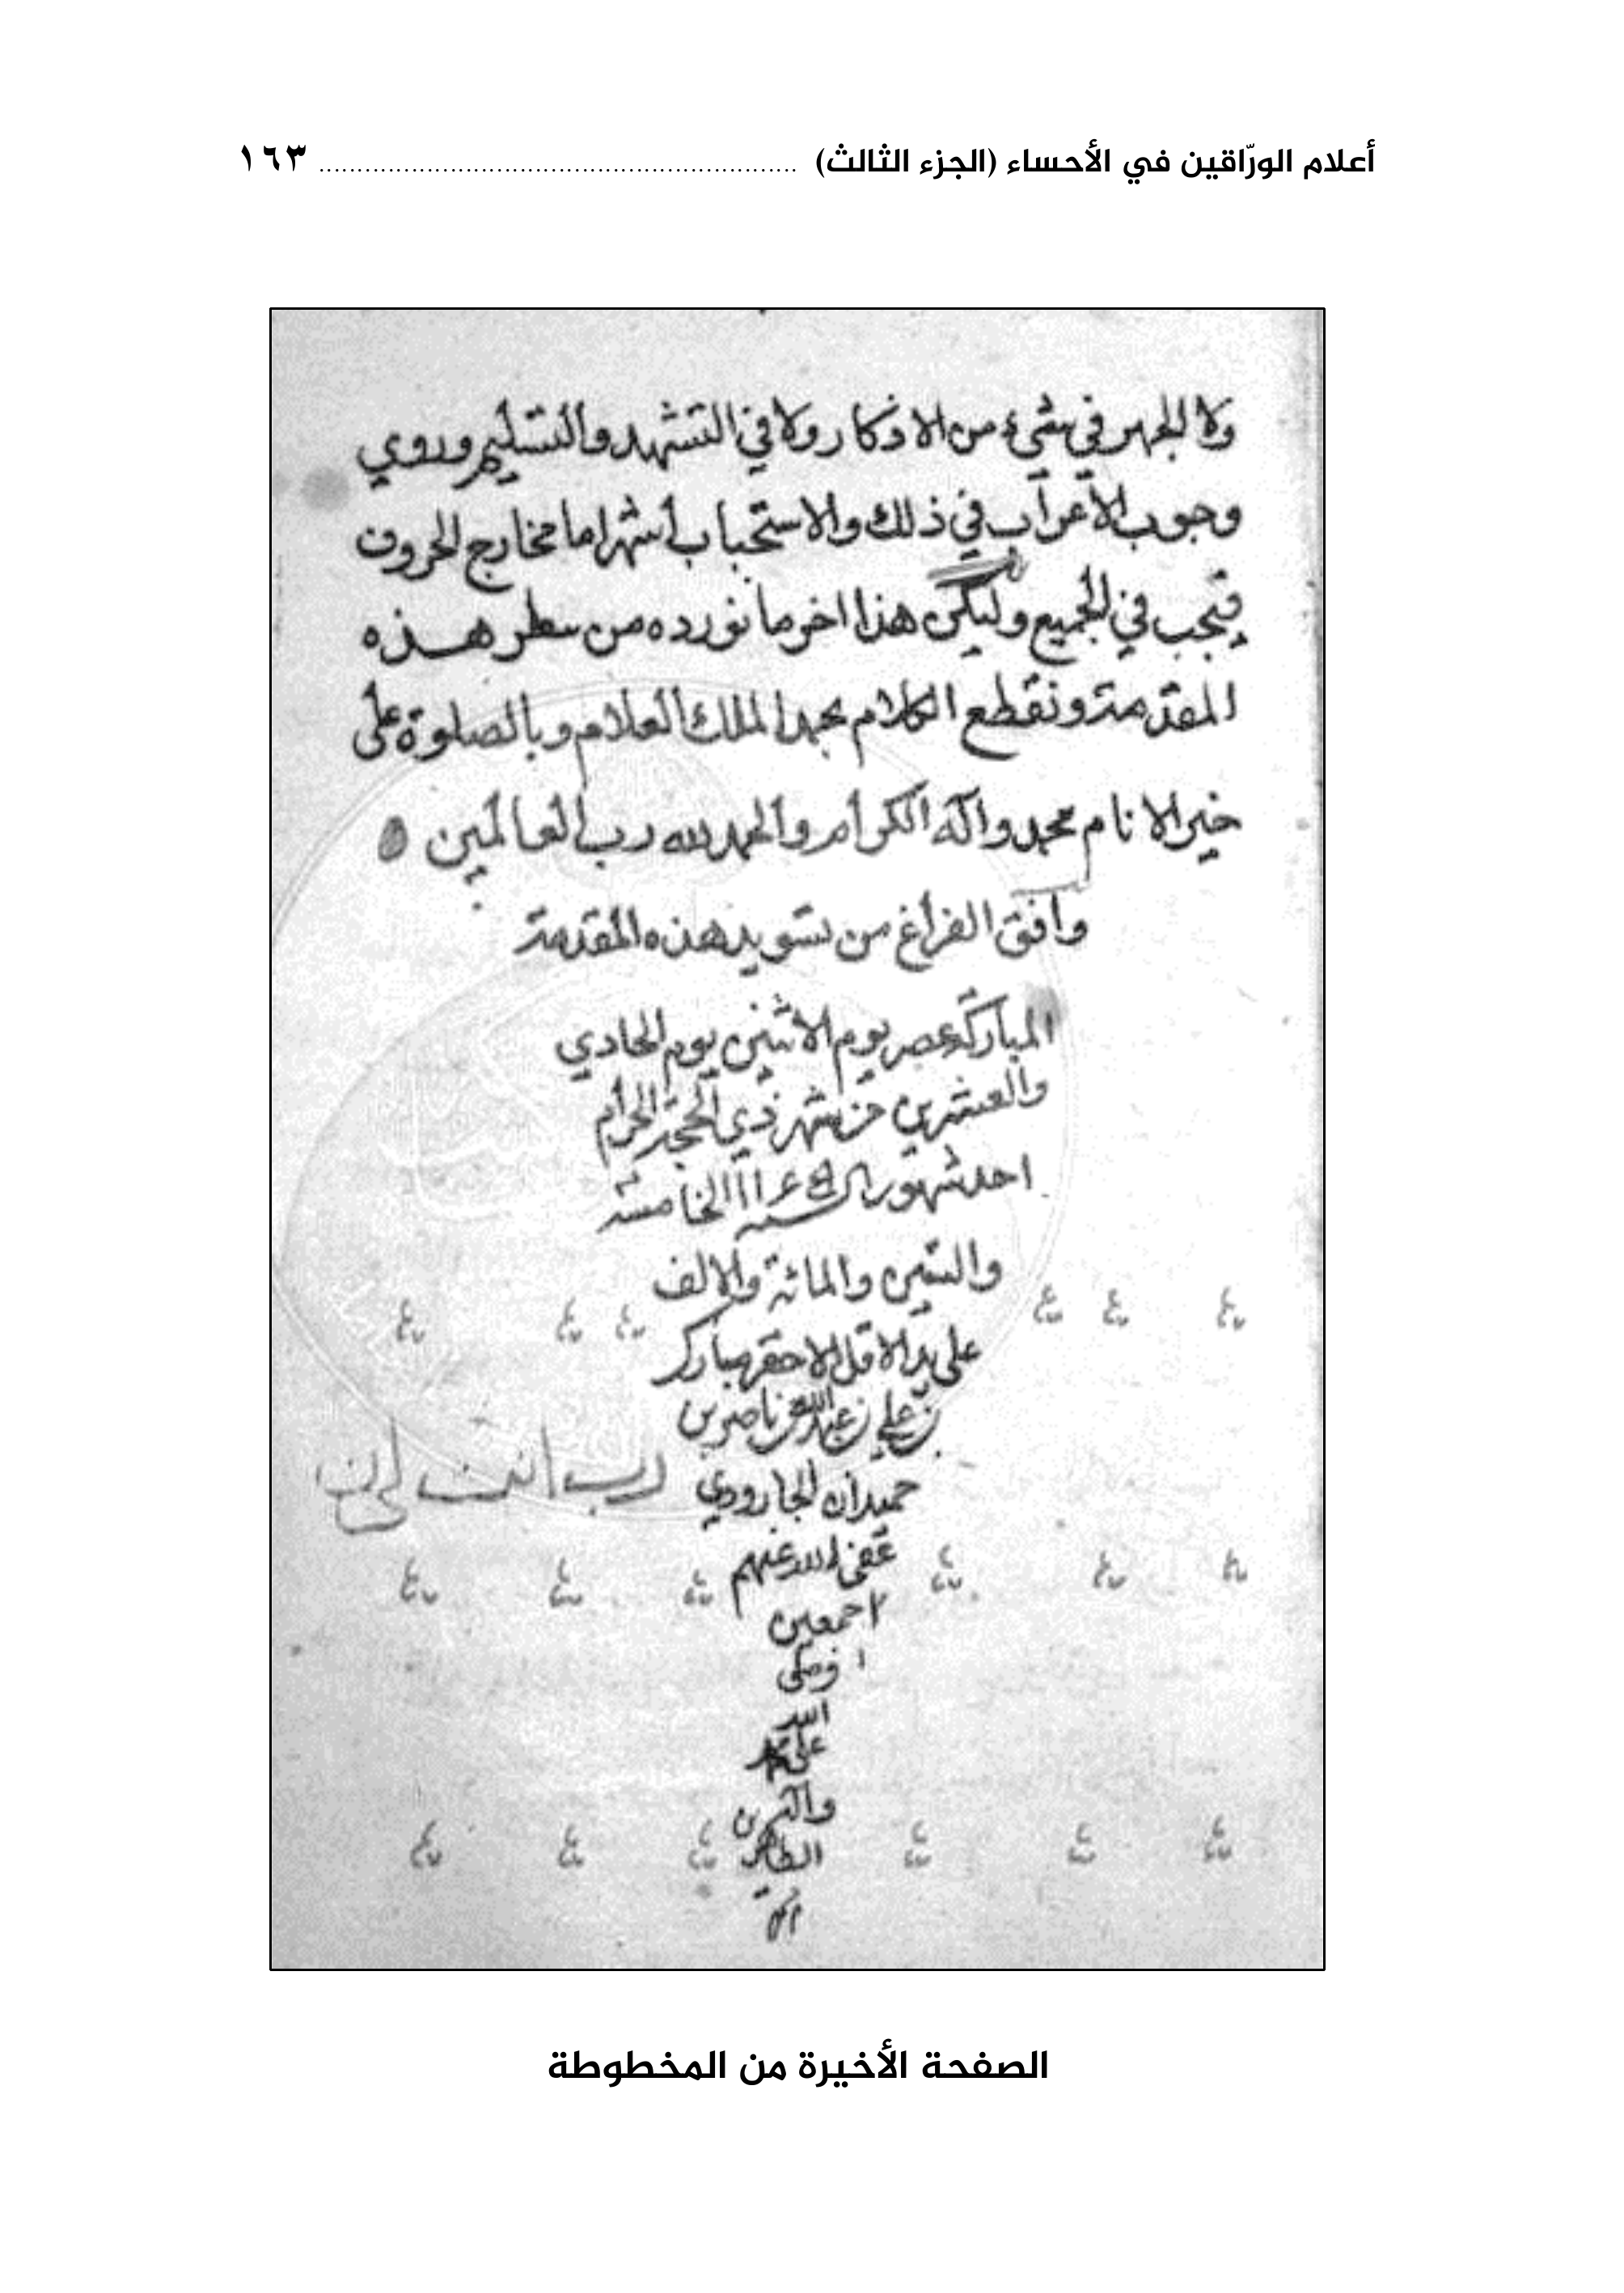 أعلام الورّاقين في الأحساء (الجزء الثالث) ........................................................ ١٦٣
ولا الجهر في شيء من الاذكار ولا في التشهد والتسليم وروي
وجوب الاعراب في ذلك والاستحباب أشهر اما مخارج الحروف
فيجب في الجميع وليكن هذا اخر ما نورده من سطر هذه
المقدمة ونقطع الكلام بحمد الملك العلام وبالصلوة على
خير الانام محمد وآله الكرام والحمد لله رب العالمين
وافق الفراغ من تسويد هذه المقدمة
المباركة عصر يوم الاثنين يوم الحادي
والعشرين من شهر ذي الحجة الحرام
احد شهور السنة الخامسة
والستين والمائة والالف
على يد الاقل الاحقر مبارك
بن علي بن عبدالله بن ناصر بن
حميدان الجارودي
عفى الله عنهم
اجمعين
وصلى
الله
على محمد
وآله
الطاهرين
رب انت
الصفحة الأخيرة من المخطوطة